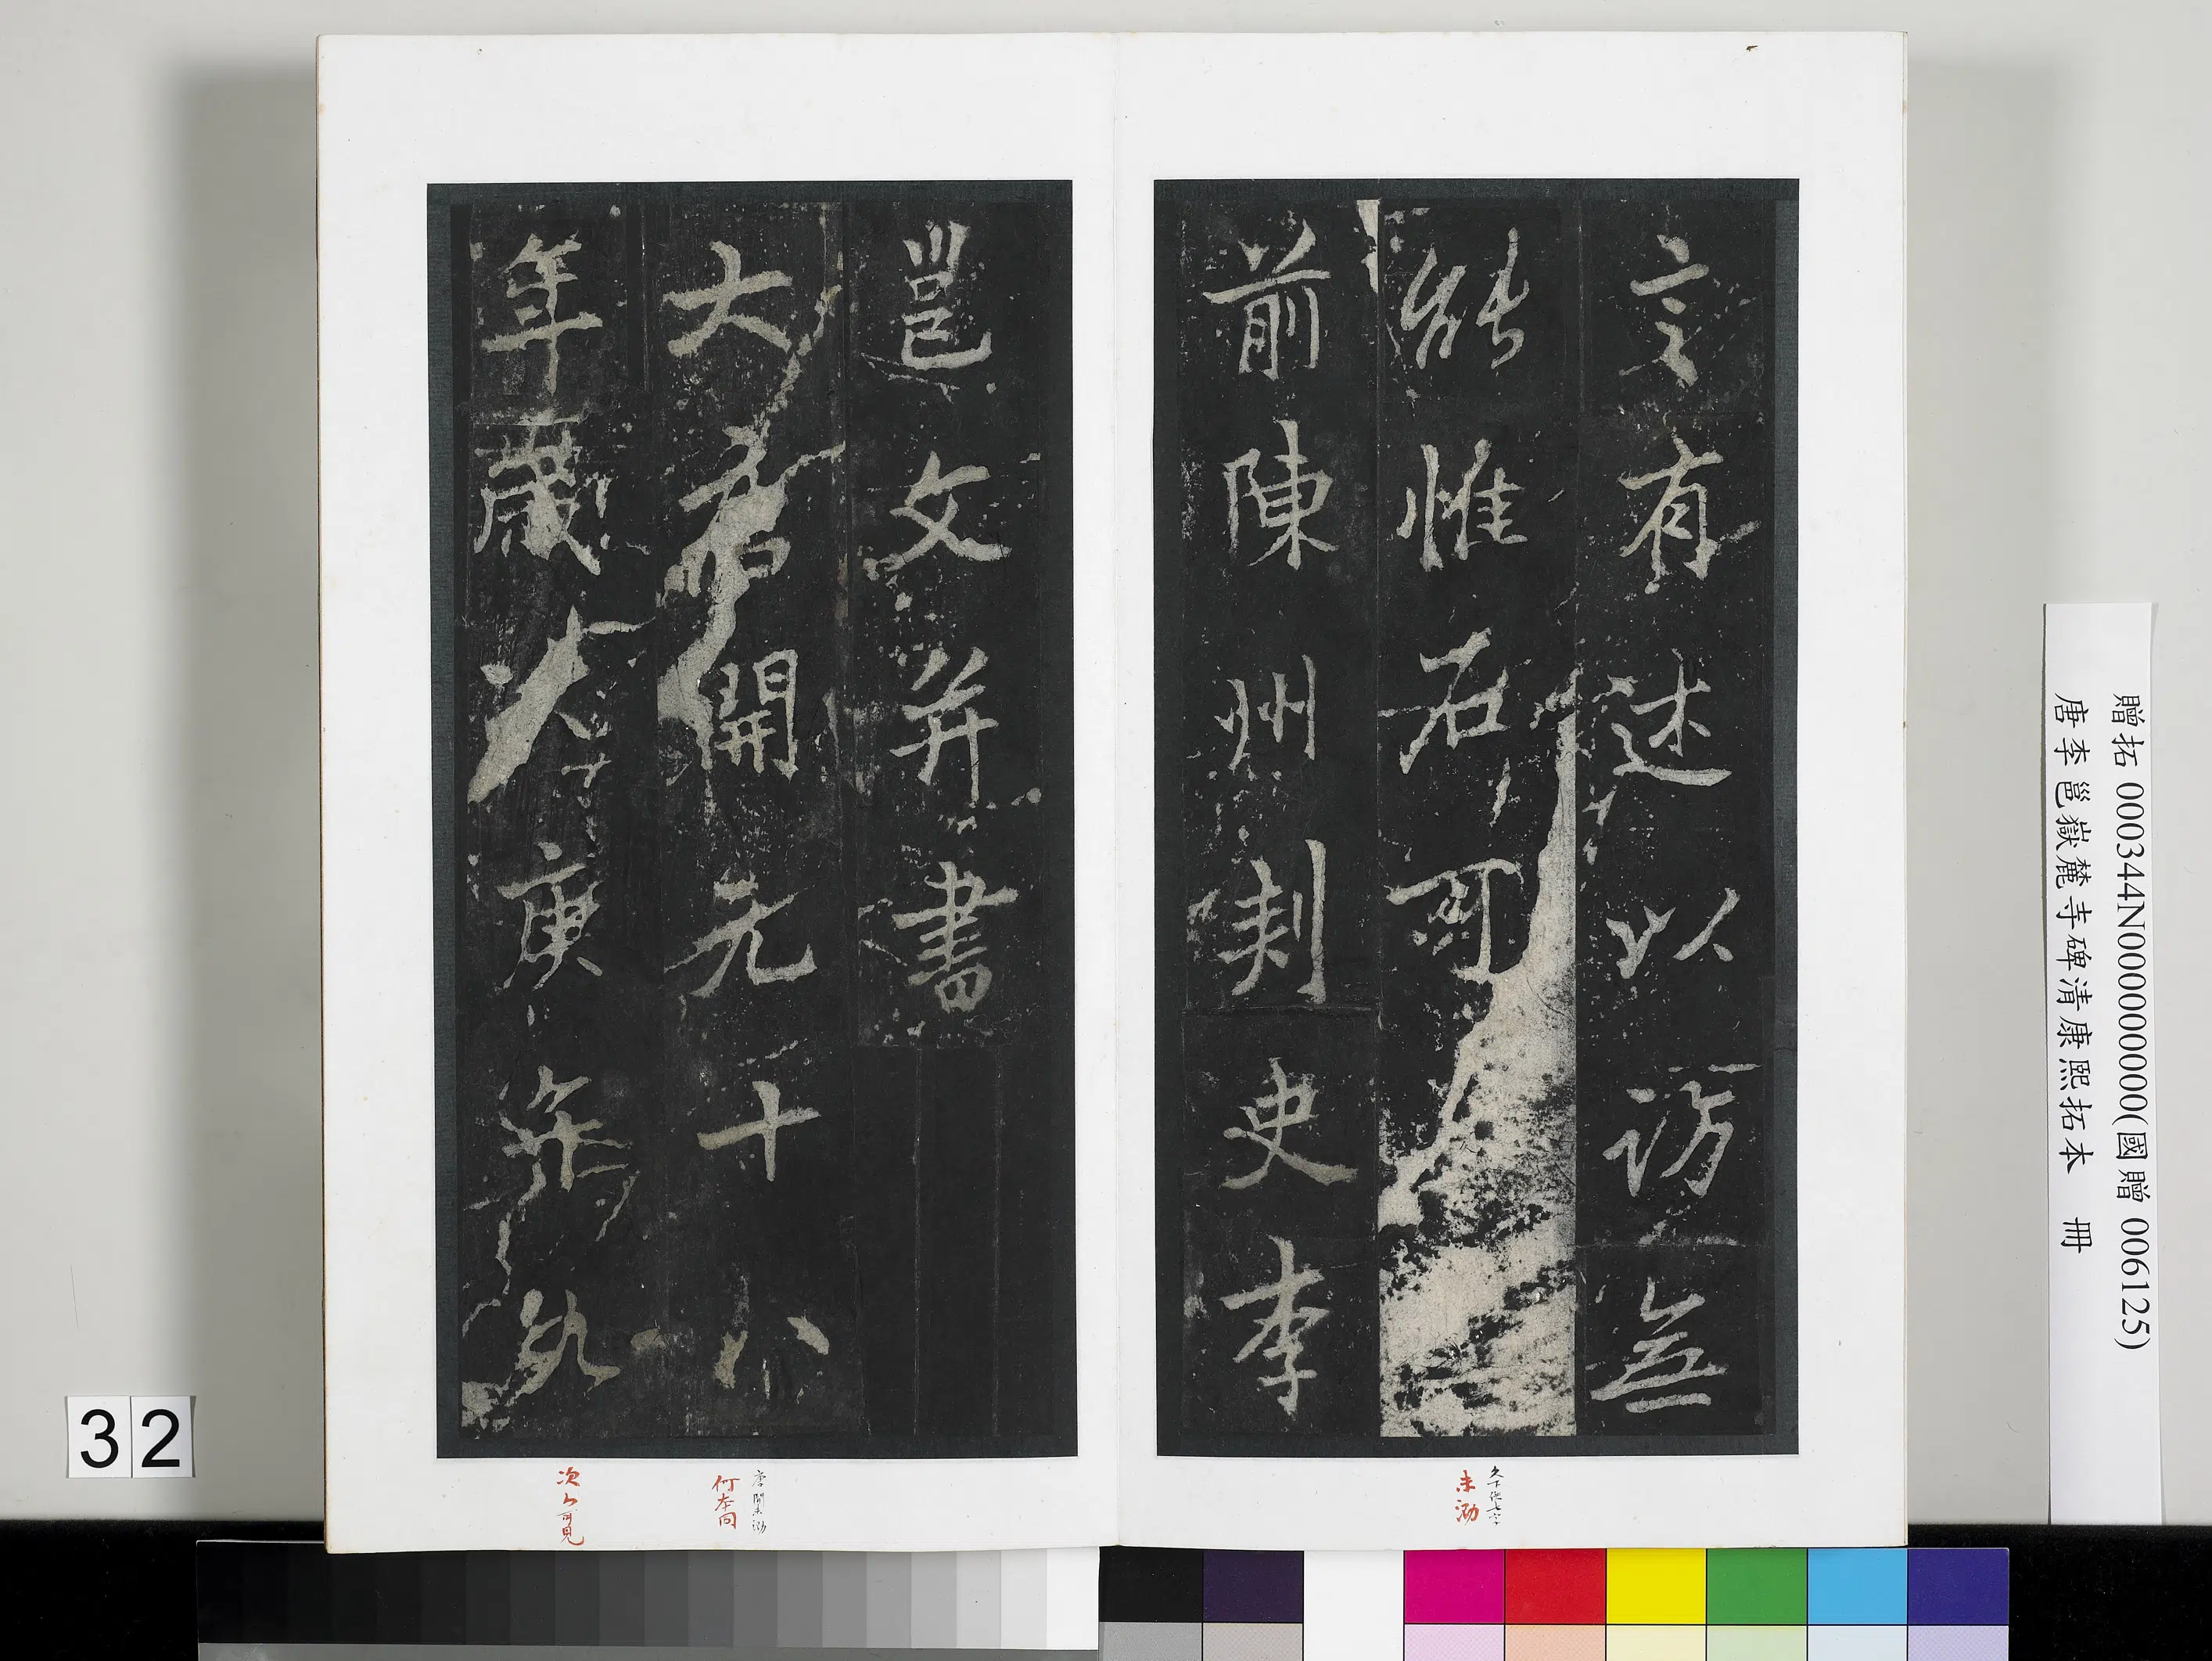 言有述以謗無
能惟石可
前陳州刾史李
邕文并書
大唐開元十八
年歲次庚午
何本同
次字可見
未泐
32
贈拓 000344N000000000(國贈 006125)
唐李邕嶽麓寺碑清康熙拓本 冊